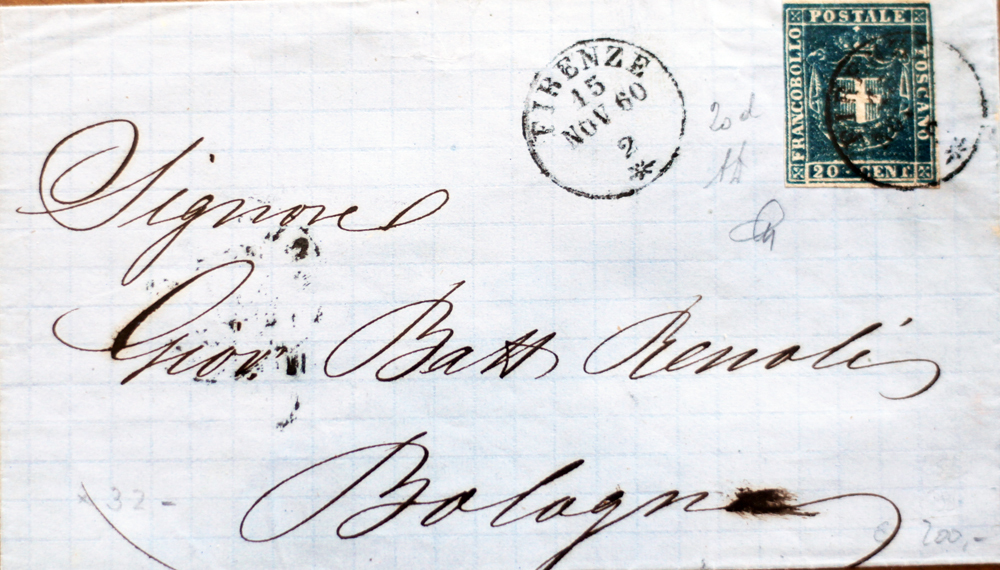 FRANCOBOLLO POSTALE TOSCANO
20 CENT
FIRENZE
15
NOV 60
2
*
20 d
Signore
Giov Batt Renoli
Bologna
32 -
200,-